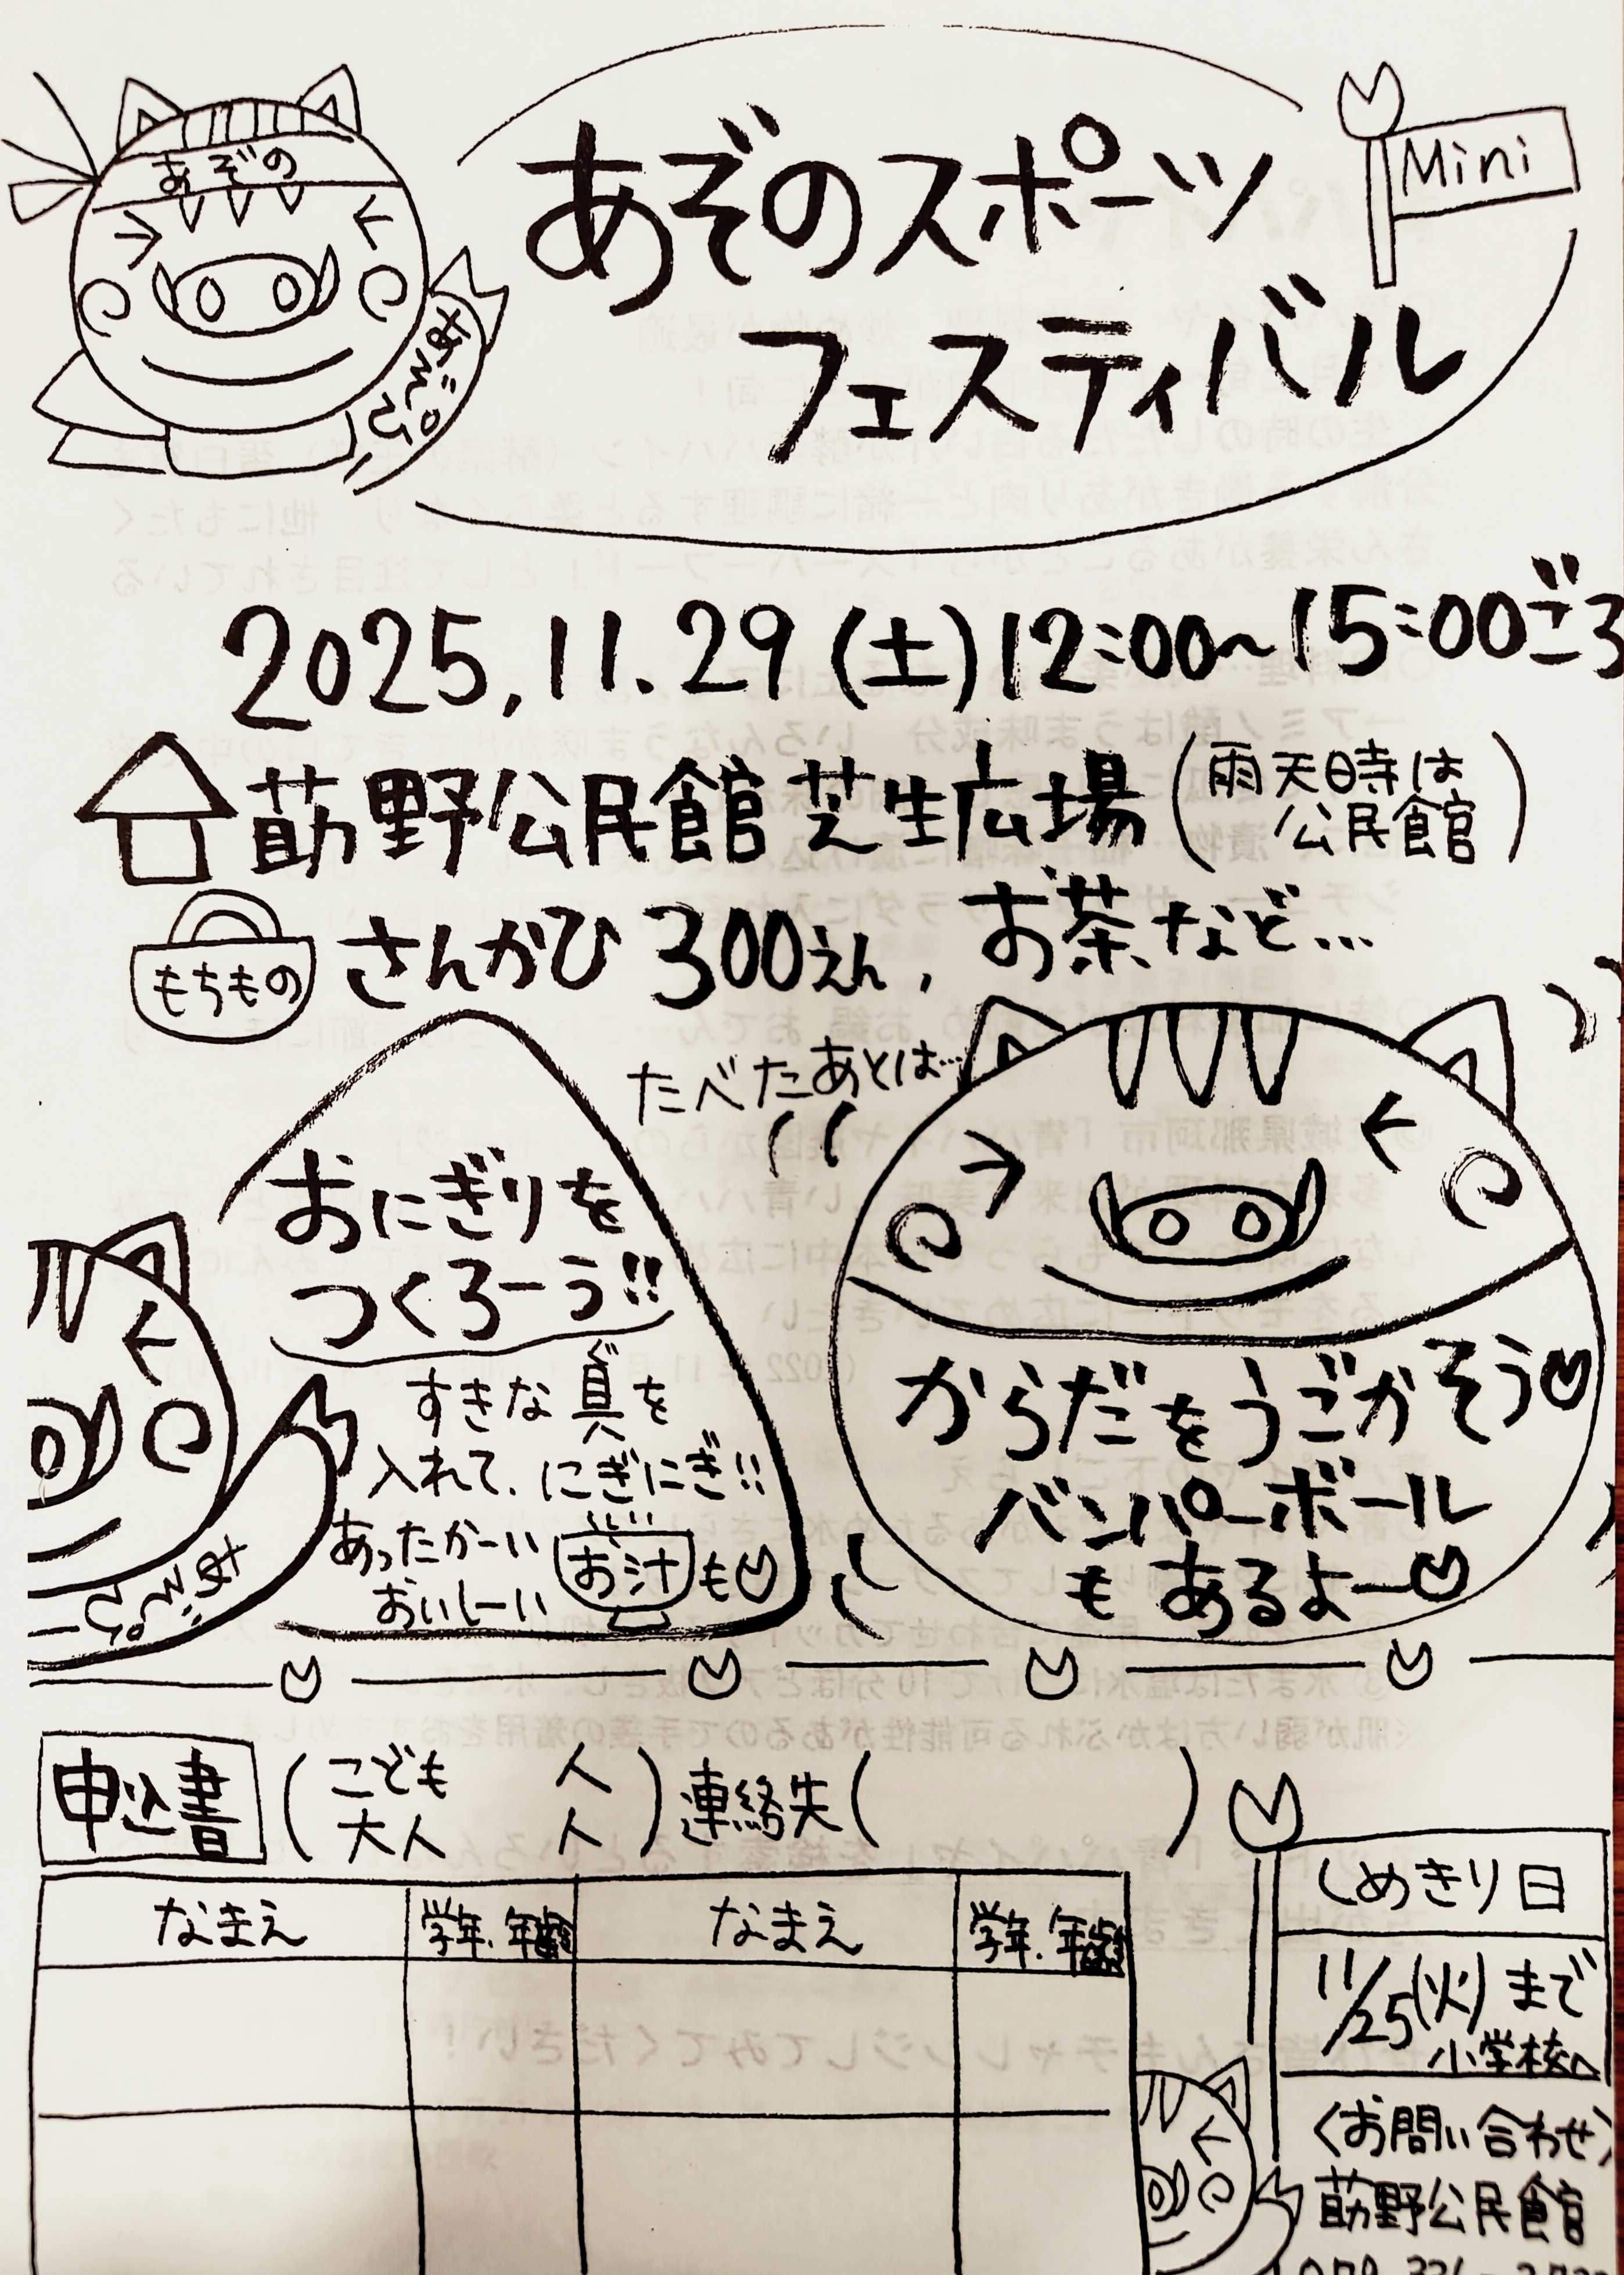 あぞのスポーツ
Mini
フェスティバル
あぞの
2025.11.29(土)12:00~15:00ごろ
莇野公民館 芝生広場(雨天時は
公民館)
もちもの さんかひ 300えん、お茶など…
たべたあとは…
おにぎりを
つくろーう!!
すきな具を
ぐ
入れて、にぎにぎ!!
あったかーい
おいしーい お汁も
からだをうごかそう
バンパーボール
もあるよー
申込書(こども 人
大人 人)連絡先( )
なまえ 学年・年齢 なまえ 学年・年齢
しめきり日
11/25(火)まで
小学校へ
〈お問い合わせ〉
莇野公民館